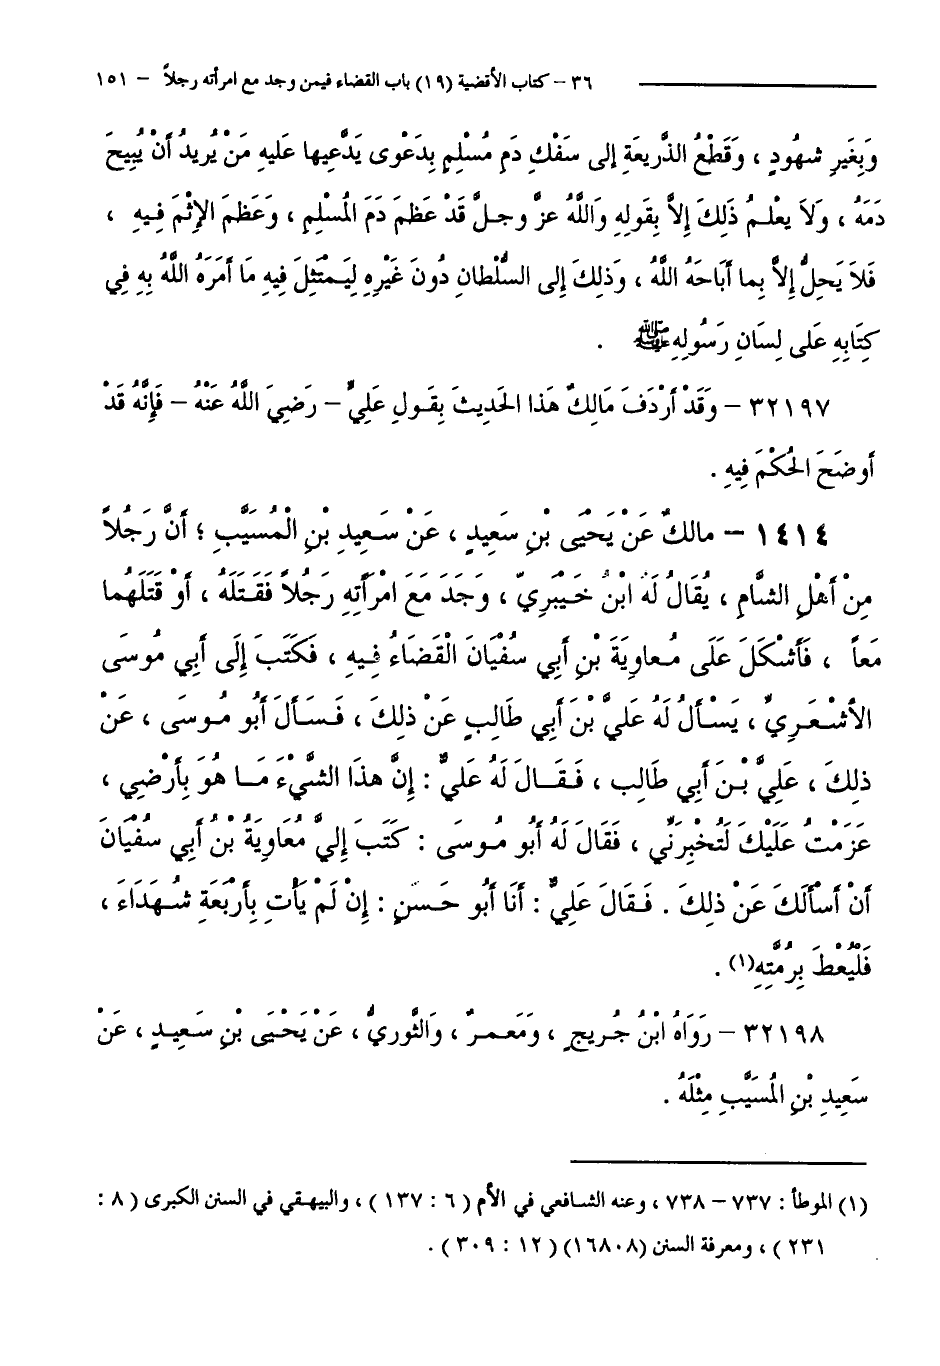 ٣٦ – كتاب الأقضية (١٩) باب القضاء فيمن وجد مع امرأته رجلاً – ١٥١
وَبِغَيرِ شهُودٍ ، وَقَطْعُ الذَّرِيعَةِ إلى سَفْكِ دَمِ مُسْلِمٍ بِدَعْوى يَدَّعِيها عَليهِ مَنْ يُرِيدُ أَنْ يُبِيحَ
دَمَهُ ، وَلاَ يعْلمُ ذَلِكَ إِلاَّ بِقَولِهِ وَاللَّهُ عزَّ وجلَّ قَدْ عظَمَ دَمَ المُسْلمِ ، وَعَظمَ الإِثْمَ فِيهِ ،
فَلاَ يَحلُّ إِلاَّ بِما أبَاحَهُ اللَّهُ ، وَذلِكَ إلى السُّلْطانِ دُونَ غَيْرِهِ لِيَمتثِلَ فيهِ مَا أمَرَهُ اللَّهُ بِهِ فِي
كِتَابِهِ عَلى لِسَانِ رَسُولِهِ ﷺ .
٣٢١٩٧ – وَقَدْ أَرْدَفَ مَالِكٌ هَذا الحَديثَ بِقَولِ عَليٍّ – رَضِيَ اللَّهُ عَنْهُ – فَإِنَّهُ قَدْ
أَوضَحَ الحُكْمَ فِيهِ .
١٤١٤ – مالكٌ عَنْ يَحْيَى بْنِ سَعِيدٍ ، عَنْ سَعِيدِ بْنِ الْمُسَيَّبِ ؛ أَنَّ رَجُلاً
مِنْ أَهْلِ الشَّامِ ، يُقَالُ لَهُ ابْنُ خَيْبَرِيّ ، وَجَدَ مَعَ امْرَأَتِهِ رَجلاً فَقَتلَهُ ، أَوْ قَتَلَهُما
مَعاً ، فَأَشْكَلَ عَلَى مُعاوِيَةَ بْنِ أَبِي سفْيَانَ الْقَضَاءُ فِيهِ ، فَكَتَبَ إِلَى أَبِي مُوسَى
الأشْعَرِيِّ ، يَسْأَلُ لَهُ عَلِيَّ بْنَ أَبِي طَالِبٍ عَنْ ذلِكَ ، فَسَأَلَ أَبُو مُوسَى ، عَنْ
ذلِكَ ، عَلِيَّ بْنَ أَبِي طَالِبٍ ، فَقَالَ لَهُ عَلِيٌّ : إِنَّ هذَا الشَّيْءَ مَا هُوَ بِأَرْضِي ،
عَزَمْتُ عَلَيْكَ لَتُخْبِرَنِّي ، فَقَالَ لَهُ أَبُو مُوسَى : كَتَبَ إِلَيَّ مُعَاوِيَةُ بْنُ أَبِي سُفْيَانَ
أَنْ أَسْأَلَكَ عَنْ ذلِكَ . فَقَالَ عَلِيٌّ : أَنَا أَبُو حَسَنٍ : إِنْ لَمْ يَأْتِ بِأَرْبَعَةِ شُهَدَاءَ ،
فَلْيُعْطَ بِرُمَّتِهِ(١) .
٣٢١٩٨ – رَوَاهُ ابْنُ جُرِيجٍ ، وَمَعمرٌ ، وَالثَّورِيُّ ، عَنْ يَحْيَى بْنِ سَعِيدٍ ، عَنْ
سَعِيدِ بْنِ المُسَيَّبِ مِثْلَهُ .
(١) الموطأ : ٧٣٧ – ٧٣٨ ، وعنه الشافعي في الأم ( ٦ : ١٣٧ ) ، والبيهقي في السنن الكبرى ( ٨ :
٢٣١ ) ، ومعرفة السنن (١٦٨٠٨) ( ١٢ : ٣٠٩ ) .